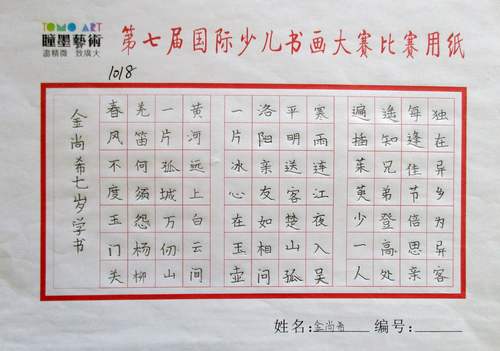 TOMO ART
瞳墨藝術
盡精微 致廣大
第七届国际少儿书画大赛比赛用纸
1018
独在异乡为异客
每逢佳节倍思亲
遥知兄弟登高处
遍插茱萸少一人
寒雨连江夜入吴
平明送客楚山孤
洛阳亲友如相问
一片冰心在玉壶
黄河远上白云间
一片孤城万仞山
羌笛何须怨杨柳
春风不度玉门关
金尚希七岁学书
姓名:金尚希 编号: